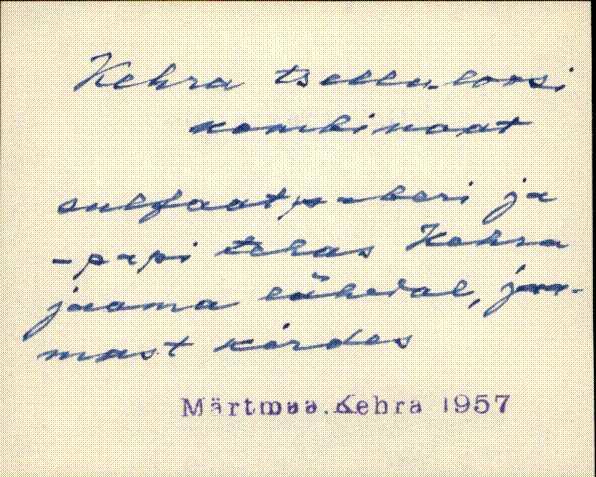 Kehra tselluloosi
kombinaat
sulfaatpaberi ja
-papi tehas Kehra
jaama lähedal, jaa-
mast kirdes
Märtmaa. Kehra 1957